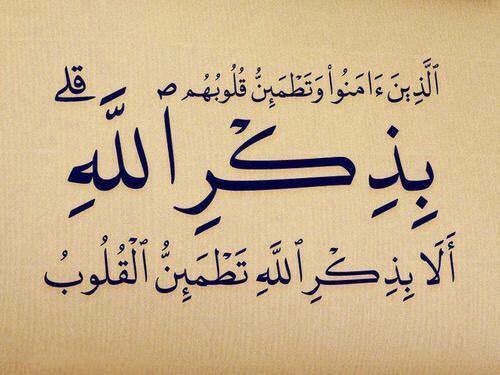 ٱلَّذِينَ ءَامَنُوا۟ وَتَطْمَئِنُّ قُلُوبُهُم ص قلے
بِذِكْرِ اللَّهِ
أَلَا بِذِكْرِ ٱللَّهِ تَطْمَئِنُّ ٱلْقُلُوبُ